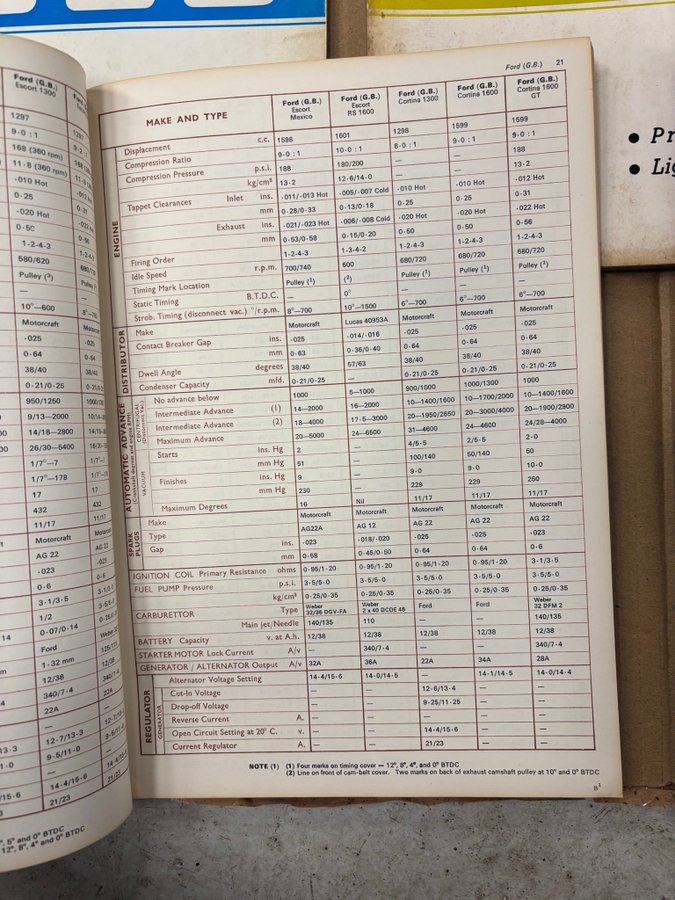 Ford (G.B.)
Escort 1300
1297
9·0 : 1
168 (360 rpm)
11·8 (360 rpm)
·010 Hot
0·25
·020 Hot
0·50
1-2-4-3
580/620
Pulley (³)
—
10°—600
Motorcraft
·025
0·64
38/40
0·21/0·25
950/1250
9/13—2000
14/18—2800
26/30—5400
1/7"—7
1/7"—178
17
432
11/17
Motorcraft
AG 22
·023
0·6
3·1/3·5
1/2
0·07/0·14
Ford
1·32 mm
12/38
340/7·4
22A
—
12·7/13·3
9·5/11·0
—
14·4/15·6
21/23
5° and 0° BTDC
12°, 8°, 4° and 0° BTDC
Ford (G.B.) 21
MAKE AND TYPE Ford (G.B.) Escort Mexico Ford (G.B.) Escort RS 1600 Ford (G.B.) Cortina 1300 Ford (G.B.) Cortina 1600 Ford (G.B.) Cortina 1600 GT
ENGINE
Displacement c.c. 1598 1601 1298 1599 1599
Compression Ratio 9·0 : 1 10·0 : 1 8·0 : 1 9·0 : 1 9·0 : 1
Compression Pressure p.s.i. 188 180/200 — — 188
kg/cm² 13·2 12·6/14·0 — — 13·2
Tappet Clearances Inlet ins. ·011/·013 Hot ·005/·007 Cold ·010 Hot ·010 Hot ·012 Hot
mm 0·28/0·33 0·13/0·18 0·25 0·25 0·31
Exhaust ins. ·021/·023 Hot ·006/·008 Cold ·020 Hot ·020 Hot ·022 Hot
mm 0·53/0·58 0·15/0·20 0·50 0·50 0·56
Firing Order 1-2-4-3 1-3-4-2 1-2-4-3 1-2-4-3 1-2-4-3
Idle Speed r.p.m. 700/740 600 680/720 680/720 680/720
Timing Mark Location Pulley (¹) (²) Pulley (¹) Pulley (¹) Pulley (¹)
Static Timing B.T.D.C. — 0° — — —
Strob. Timing (disconnect vac.) °/r.p.m. 8°—700 10°—1500 6°—700 6°—700 6°—700
DISTRIBUTOR
Make Motorcraft Lucas 40953A Motorcraft Motorcraft Motorcraft
Contact Breaker Gap ins. ·025 ·014/·016 ·025 ·025 ·025
mm 0·63 0·36/0·40 0·64 0·64 0·64
Dwell Angle degrees 38/40 57/63 38/40 38/40 38/40
Condenser Capacity mfd. 0·21/0·25 — 0·21/0·25 0·21/0·25 0·21/0·25
AUTOMATIC ADVANCE
(Crankshaft degrees and engine RPM)
CENTRIFUGAL
(Disconnect Vac.)
No advance below 1000 5—1000 900/1000 1000/1300 1000
Intermediate Advance (1) 14—2000 16—2000 10—1400/1600 10—1700/2000 10—1400/1600
Intermediate Advance (2) 18—4000 17·5—3000 20—1950/2650 20—3000/4000 20—1900/2900
Maximum Advance 20—5000 24—6500 31—4600 24—4600 24/28—4000
VACUUM
Starts Ins. Hg 2 — 4/5·5 2/5·5 2·0
mm Hg 51 — 100/140 50/140 50
Finishes ins. Hg 9 — 9·0 9·0 10·0
mm Hg 230 — 229 229 250
Maximum Degrees 16 Nil 11/17 11/17 11/17
SPARK PLUGS
Make Motorcraft Motorcraft Motorcraft Motorcraft Motorcraft
Type AG22A AG 12 AG 22 AG 22 AG 22
Gap ins. ·023 ·018/·020 ·025 ·025 ·023
mm 0·58 0·45/0·50 0·64 0·64 0·6
IGNITION COIL Primary Resistance ohms 0·95/1·20 0·95/1·20 0·95/1·20 0·95/1·20 3·1/3·5
FUEL PUMP Pressure p.s.i. 3·5/5·0 3·5/5·0 3·5/5·0 3·5/5·0 3·5/5·0
kg/cm² 0·25/0·35 0·25/0·35 0·25/0·35 0·25/0·35 0·25/0·35
CARBURETTOR Type Weber 32/36 DGV-FA Weber 2 x 40 DCOE 48 Ford Ford Weber 32 DFM 2
Main jet/Needle 140/135 110 — — 140/135
BATTERY Capacity v. at A.h. 12/38 12/38 12/38 12/38 12/38
STARTER MOTOR Lock Current A/v — 340/7·4 — — 340/7·4
GENERATOR / ALTERNATOR Output A/v 32A 36A 22A 34A 28A
REGULATOR
GENERATOR
Alternator Voltage Setting 14·4/15·6 14·0/14·5 — 14·1/14·5 14·0/14·4
Cut-In Voltage — — 12·6/13·4 — —
Drop-off Voltage — — 9·25/11·25 — —
Reverse Current A. — — — — —
Open Circuit Setting at 20° C. v. — — 14·4/15·6 — —
Current Regulator A. — — 21/23 — —
NOTE (1) (1) Four marks on timing cover — 12°, 8°, 4°, and 0° BTDC
(2) Line on front of cam-belt cover. Two marks on back of exhaust camshaft pulley at 10° and 0° BTDC
B¹